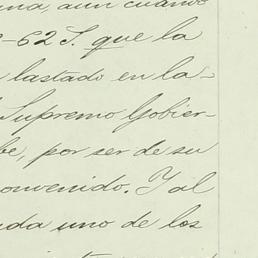 una, aun cuando
-62 S. que la
lastado en la-
Supremo Gobier-
be, por ser de su
convenido. Y al
ada uno de los